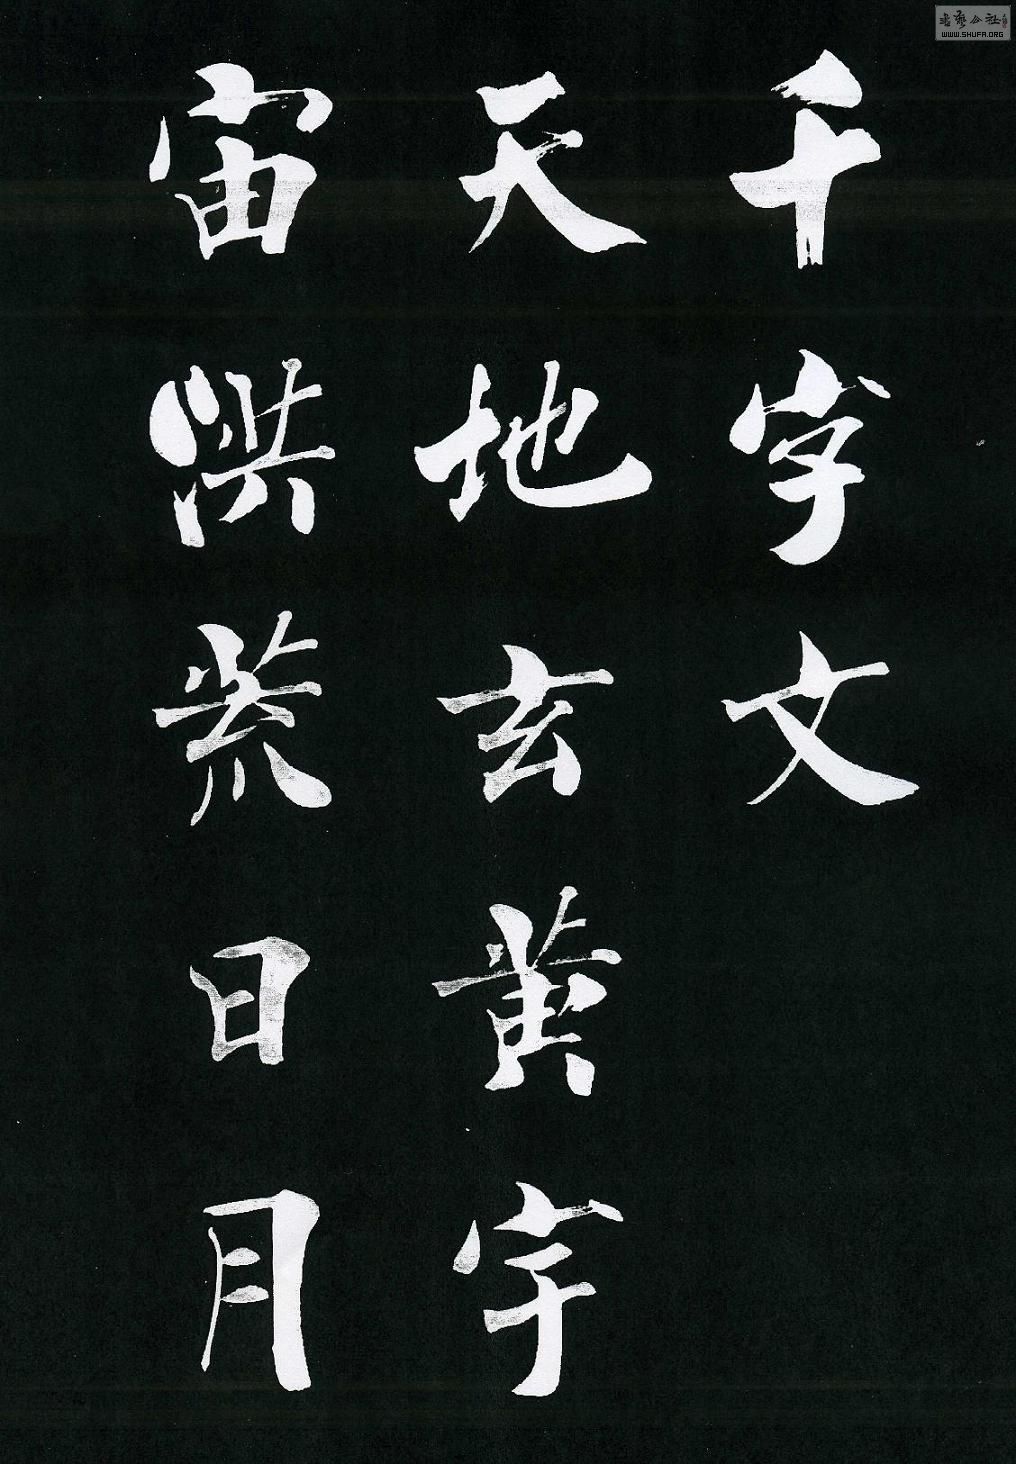 千字文
天地玄黄宇
宙洪荒日月
书艺公社
WWW.SHUFA.ORG